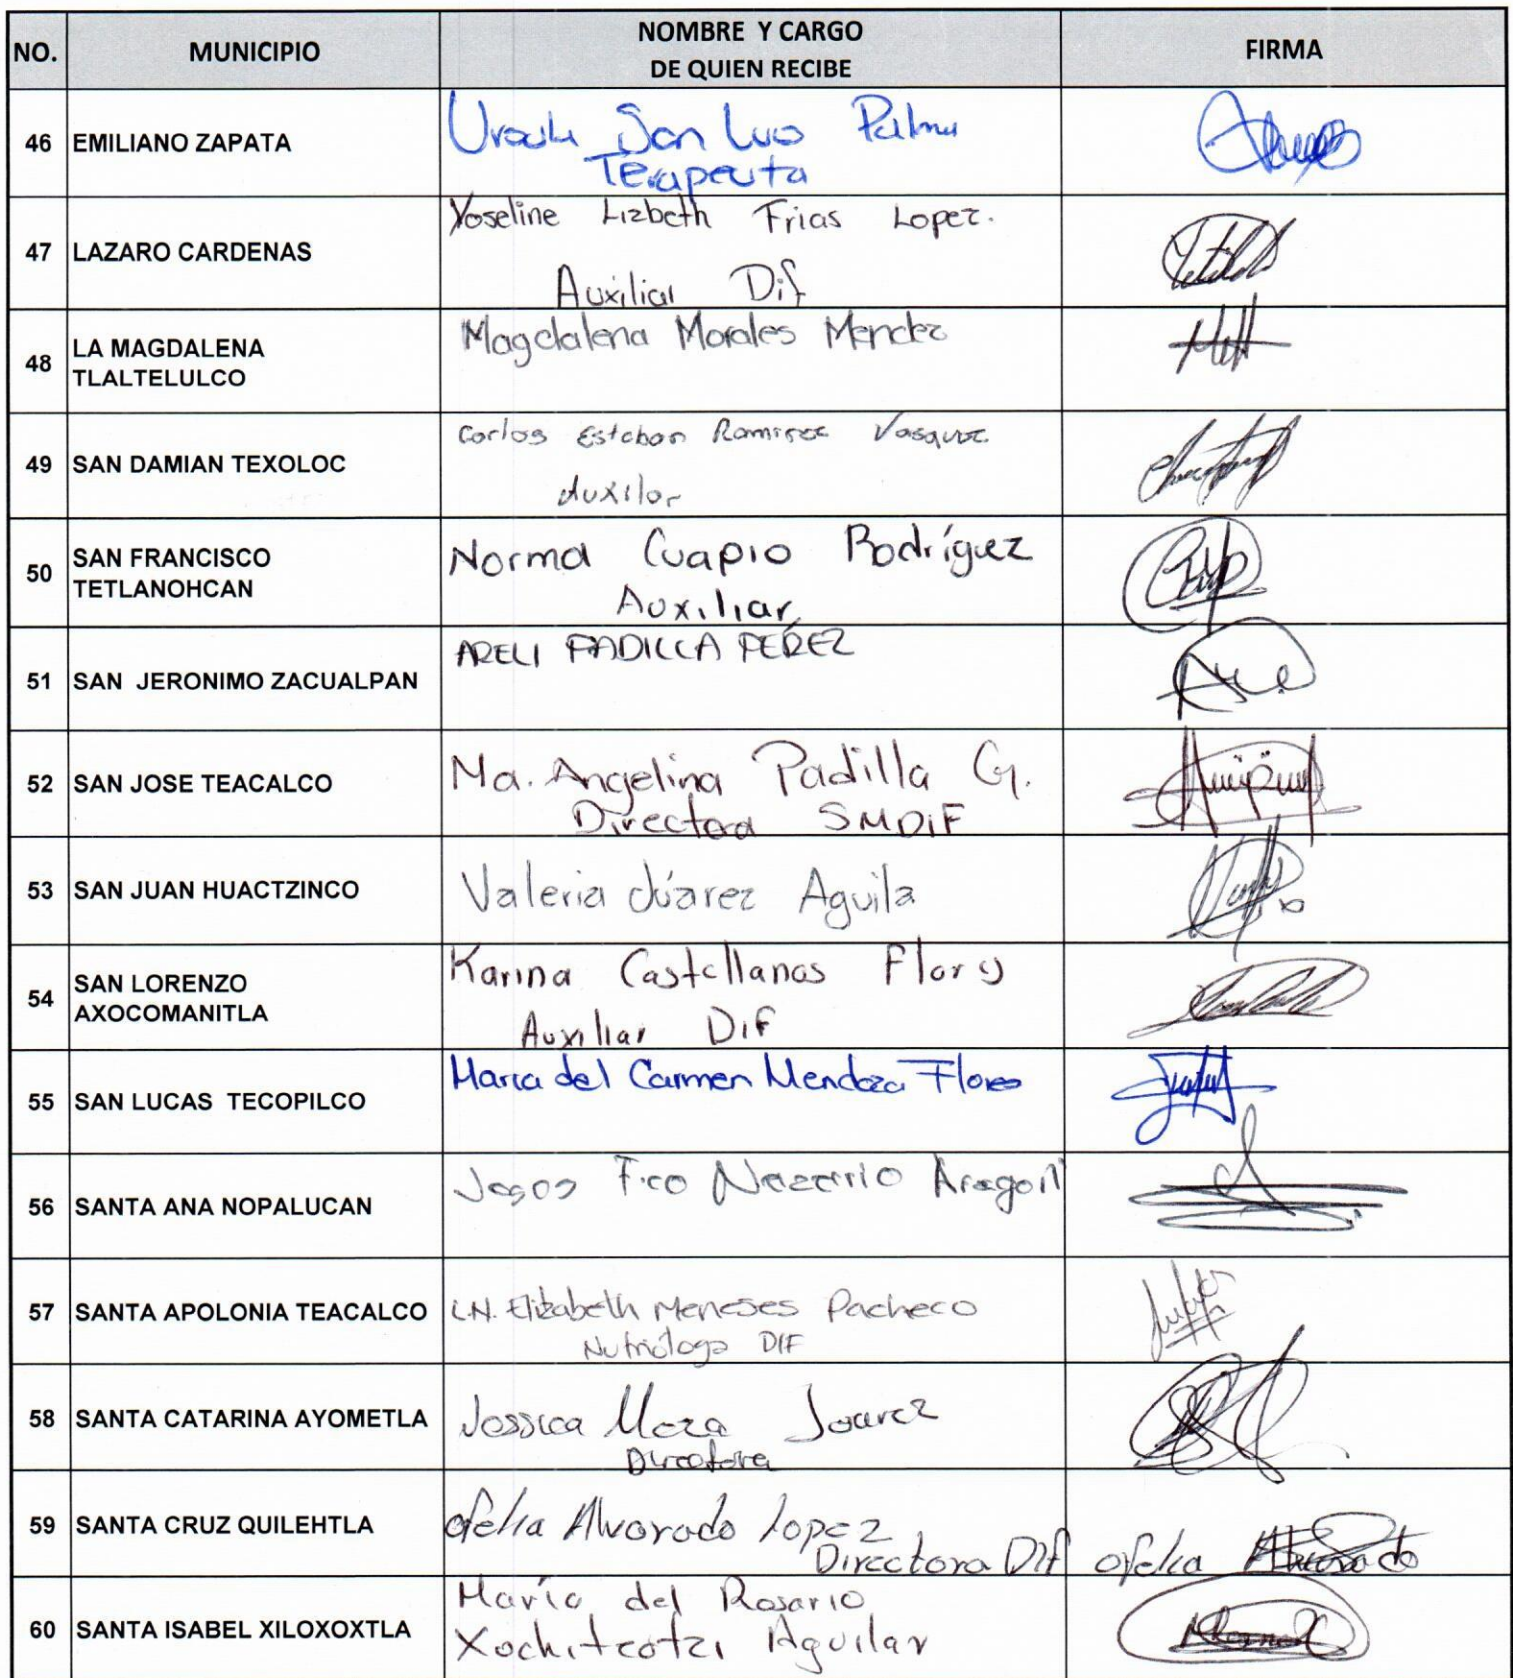 NO. MUNICIPIO NOMBRE Y CARGO DE QUIEN RECIBE FIRMA
46 EMILIANO ZAPATA Ursula San Luis Palma
Terapeuta
47 LAZARO CARDENAS Yoseline Lizbeth Frias Lopez.
Auxiliar Dif
48 LA MAGDALENA TLALTELULCO Magdalena Morales Mendez
49 SAN DAMIAN TEXOLOC Carlos Esteban Ramirez Vasquez
Auxilar
50 SAN FRANCISCO TETLANOHCAN Norma Cuapio Rodríguez
Auxiliar
51 SAN JERONIMO ZACUALPAN ARELI PADILLA PEREZ
52 SAN JOSE TEACALCO Ma. Angelina Padilla G.
Directora SMDiF
53 SAN JUAN HUACTZINCO Valeria Júarez Aguila
54 SAN LORENZO AXOCOMANITLA Karina Castellanos Flores
Auxiliar Dif
55 SAN LUCAS TECOPILCO Maria del Carmen Mendoza Flores
56 SANTA ANA NOPALUCAN Jesos Fco Nazario Aragon
57 SANTA APOLONIA TEACALCO L.N. Elizabeth Meneses Pacheco
Nutrióloga DIF
58 SANTA CATARINA AYOMETLA Jessica Meza Juarez
Directora
59 SANTA CRUZ QUILEHTLA ofelia Alvarado Lopez
Directora Dif ofelia Alvarado
60 SANTA ISABEL XILOXOXTLA María del Rosario
Xochiteotzi Aguilar